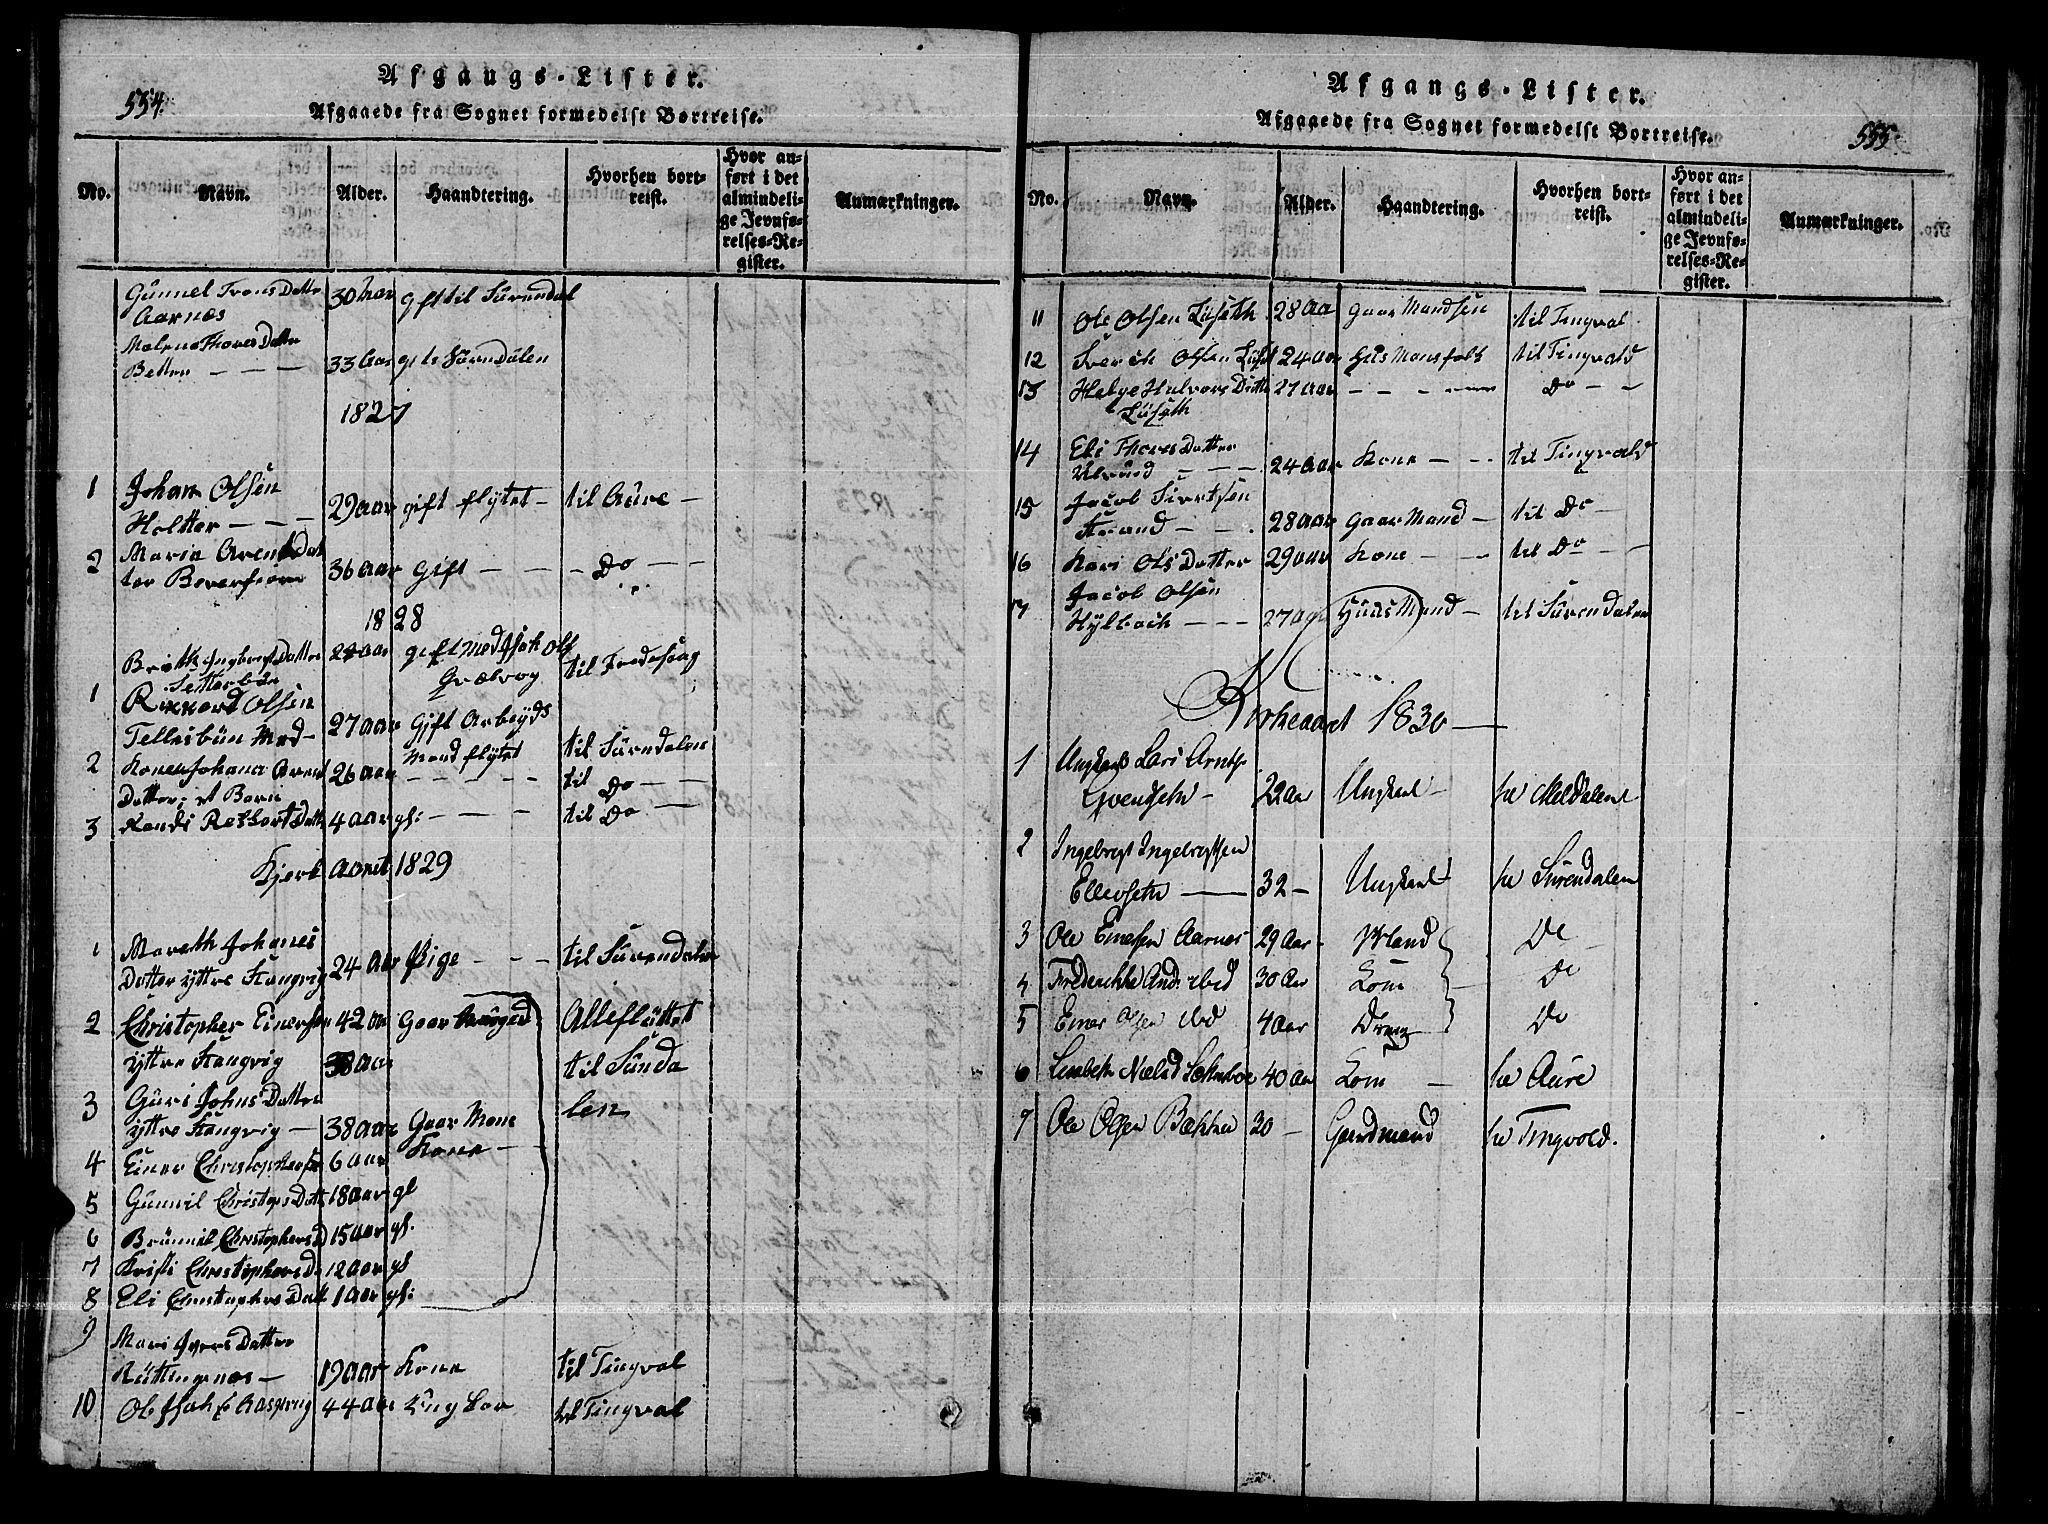 554.
Afgangs-Lister.
Afgaaede fra Sognet formedelst Bortreise.
No. Navn. Alder. Haandtering. Hvorhen bortreist. Hvor anført i det almindelige Jevnførelses-Register. Anmærkninger.
Gunnel Trons Datter 30 aar gift til Surendal
Aarnæs
Malene Thores Datter
Betten — — — 33 aar Surndalen
1827
1 Johan Olsen
Heltter — — — 29 aar gift flytet — til Aure —
2 Maria Arents Dat
ter Beverfiorn 36 aar gift — — — Do — —
1828
Brith Ingebrigt Datter aar gift med Isak Ols
Setterbøn til
1 Rikkard Olsen
Tellesbün Med — 27 aar Gift Arbeyds
Mand flytet til Surndalen
2 Konen Johana Arent 26 aar — — — — til Do — —
Datter, et Barn
3 Randi Rekkort Datt 4 aar — — — til Do —
Kjerk aaret 1829
1 Mareth Johanes
Datter yttre Stangvig 24 aar Pige — — — til Surendalen
2 Christopher Einersen 42 aar Gaar Alle flüttet
yttre Stangvig 38 aar til Sunda
3 Guri Johns Datter len
yttre Stangvig — 38 aar Gaar Mane
Kone —
4 Einer Christophersen 6 aar
5 Gunnil Christops Datt 18 aar
6 Brünnil Christophers D 15 aar
7 Kristi Christophers D 12 aar
8 Eli Christophers Datt 1 aar
9 Mari Ivers Datter
Rüttingsnæs — 19 aar Kone til Tingval
10 Ole Isak 44 aar Ung Kar til Tingval
555.
Afgangs-Lister.
Afgaaede fra Sognet formedelst Bortreise.
No. Navn. Alder. Haandtering. Hvorhen bortreist. Hvor anført i det almindelige Jevnførelses-Register. Anmærkninger.
11 Ole Olsen Lüseth 28 Aa Gaar Mandsen til Tingval
12 Siverth Olsen Lüset 24 aar Hüs Mansfolk til Tingvald
13 Helge Halvors Datter 27 aar — — — — Do — —
Lüseth
14 Eli Thores Datter
Ulvund — — — 24 aar Kone — — til Tingvald
15 Jacob Sivertsen
Strand — — 28 aar Gaar Mand — til Do —
16 Kari Ols Datter 29 aar Kone — — til Do — —
Jacob Olsen
17 Hylbach — — — 27 aar Huus Mand — til Surendalen
Kirkeaaret 1830 —
1 Ungkarl Lars Arnts.
Svenseth — 22 Aar Ungkarl — til Meldalen
2 Ingebrigt Ingebrigtsen
Ellevseth — 32 — Ungkarl til Surendalen
3 Ole Einersen Aarnes 29 Aar — Mand Do —
4 Frederikke And: ibid 30 Aar Kone Do
5 Einer Olsen ibid 4 Aar Dreng Do
6 Lisabeth Nielsd 40 Aar Kone — til Aure
7 Ole Olsen Bækken 20 — Gaardmand til Tingvold.